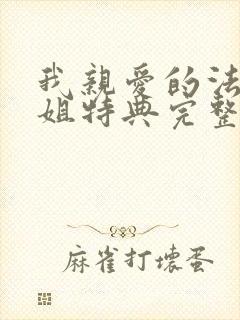 我親愛的法
姐特典完整
麻雀打壞蛋